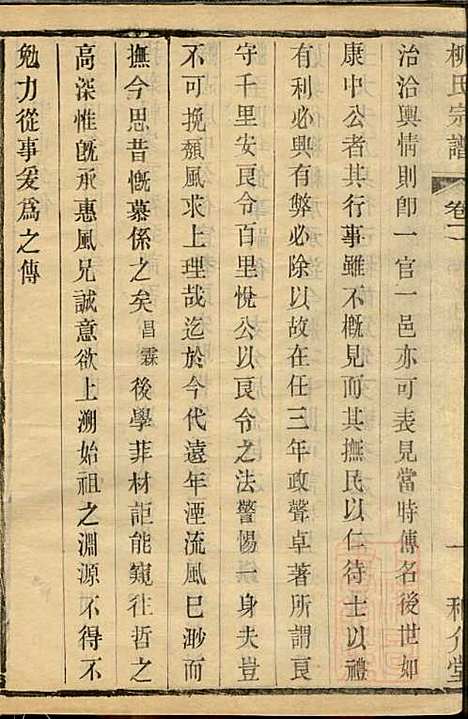 柳氏宗譜
卷二
一
和介堂
治洽輿情則卽一官一邑亦可表見當時傳名後世如
康中公者其行事雖不概見而其撫民以仁待士以禮
有利必興有弊必除以故在任三年政聲卓著所謂良
守千里安良令百里悅公以良令之法警惕一身夫豈
不可挽頹風求上理哉迄於今代遠年湮流風巳渺而
撫今思昔慨慕係之矣昌霖後學菲材詎能窺往哲之
高深惟既承惠風兄誠意欲上溯始祖之淵源不得不
勉力從事爰爲之傳